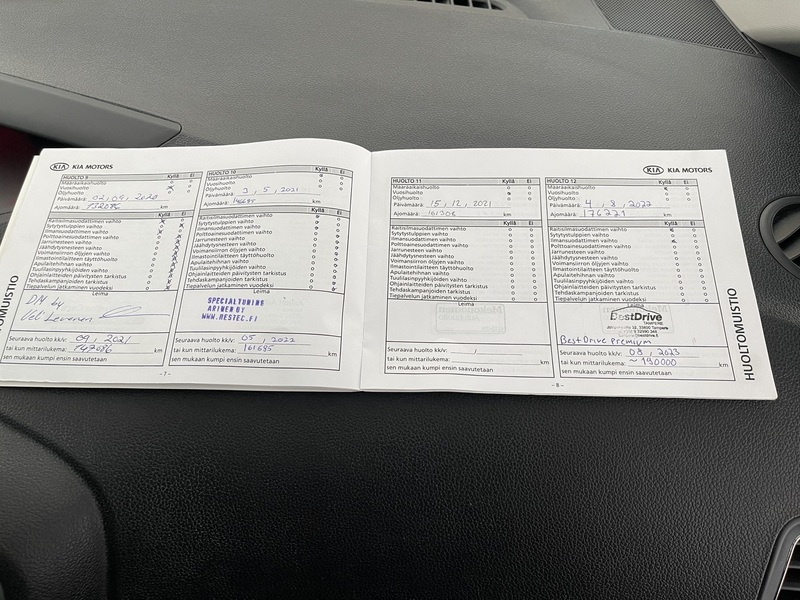 KIA KIA MOTORS
HUOLTO 9 Kyllä Ei
Määräaikaishuolto
Vuosihuolto
Öljyhuolto
Päivämäärä:
Ajomäärä: km
Kyllä Ei
Raitisilmasuodattimen vaihto
Sytytystulppien vaihto
Ilmansuodattimen vaihto
Polttoainesuodattimen vaihto
Jarrunesteen vaihto
Jäähdytysnesteen vaihto
Voimansiirron öljyjen vaihto
Ilmastointilaitteen täyttöhuolto
Apulaitehihnan vaihto
Tuulilasinpyyhkijöiden vaihto
Ohjainlaitteiden päivitysten tarkistus
Tehdaskampanjoiden tarkistus
Tiepalvelun jatkaminen vuodeksi
Leima
Seuraava huolto kk/v: 09, 2021
tai kun mittarilukema: km
sen mukaan kumpi ensin saavutetaan
- 7 -
HUOLTO 10 Kyllä Ei
Määräaikaishuolto
Vuosihuolto
Öljyhuolto
Päivämäärä: 3, 5, 2021
Ajomäärä: km
Kyllä Ei
Raitisilmasuodattimen vaihto
Sytytystulppien vaihto
Ilmansuodattimen vaihto
Polttoainesuodattimen vaihto
Jarrunesteen vaihto
Jäähdytysnesteen vaihto
Voimansiirron öljyjen vaihto
Ilmastointilaitteen täyttöhuolto
Apulaitehihnan vaihto
Tuulilasinpyyhkijöiden vaihto
Ohjainlaitteiden päivitysten tarkistus
Tehdaskampanjoiden tarkistus
Tiepalvelun jatkaminen vuodeksi
Leima
SPECIALTUNING
WWW.RESTEC.FI
Seuraava huolto kk/v: 05, 2022
tai kun mittarilukema: 161685 km
sen mukaan kumpi ensin saavutetaan
KIA KIA MOTORS
HUOLTO 11 Kyllä Ei
Määräaikaishuolto
Vuosihuolto
Öljyhuolto
Päivämäärä: 15, 12, 2021
Ajomäärä: 161308 km
Kyllä Ei
Raitisilmasuodattimen vaihto
Sytytystulppien vaihto
Ilmansuodattimen vaihto
Polttoainesuodattimen vaihto
Jarrunesteen vaihto
Jäähdytysnesteen vaihto
Voimansiirron öljyjen vaihto
Ilmastointilaitteen täyttöhuolto
Apulaitehihnan vaihto
Tuulilasinpyyhkijöiden vaihto
Ohjainlaitteiden päivitysten tarkistus
Tehdaskampanjoiden tarkistus
Tiepalvelun jatkaminen vuodeksi
Leima
Seuraava huolto kk/v:
tai kun mittarilukema: km
sen mukaan kumpi ensin saavutetaan
- 8 -
HUOLTO 12 Kyllä Ei
Määräaikaishuolto
Vuosihuolto
Öljyhuolto
Päivämäärä: 4, 8, 2022
Ajomäärä: 176221 km
Kyllä Ei
Raitisilmasuodattimen vaihto
Sytytystulppien vaihto
Ilmansuodattimen vaihto
Polttoainesuodattimen vaihto
Jarrunesteen vaihto
Jäähdytysnesteen vaihto
Voimansiirron öljyjen vaihto
Ilmastointilaitteen täyttöhuolto
Apulaitehihnan vaihto
Tuulilasinpyyhkijöiden vaihto
Ohjainlaitteiden päivitysten tarkistus
Tehdaskampanjoiden tarkistus
Tiepalvelun jatkaminen vuodeksi
Leima
BestDrive
BestDrive premium
Seuraava huolto kk/v: 08, 2023
tai kun mittarilukema: ~190000 km
sen mukaan kumpi ensin saavutetaan
HUOLTOMUISTIO